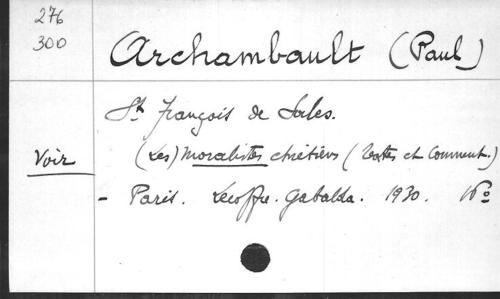 276
300
Archambault (Paul)
St François de Sales.
Voir
(Les) Moralistes chrétiens (Textes et Comment.)
- Paris. Lecoffre. Gabalda. 1930. 16º